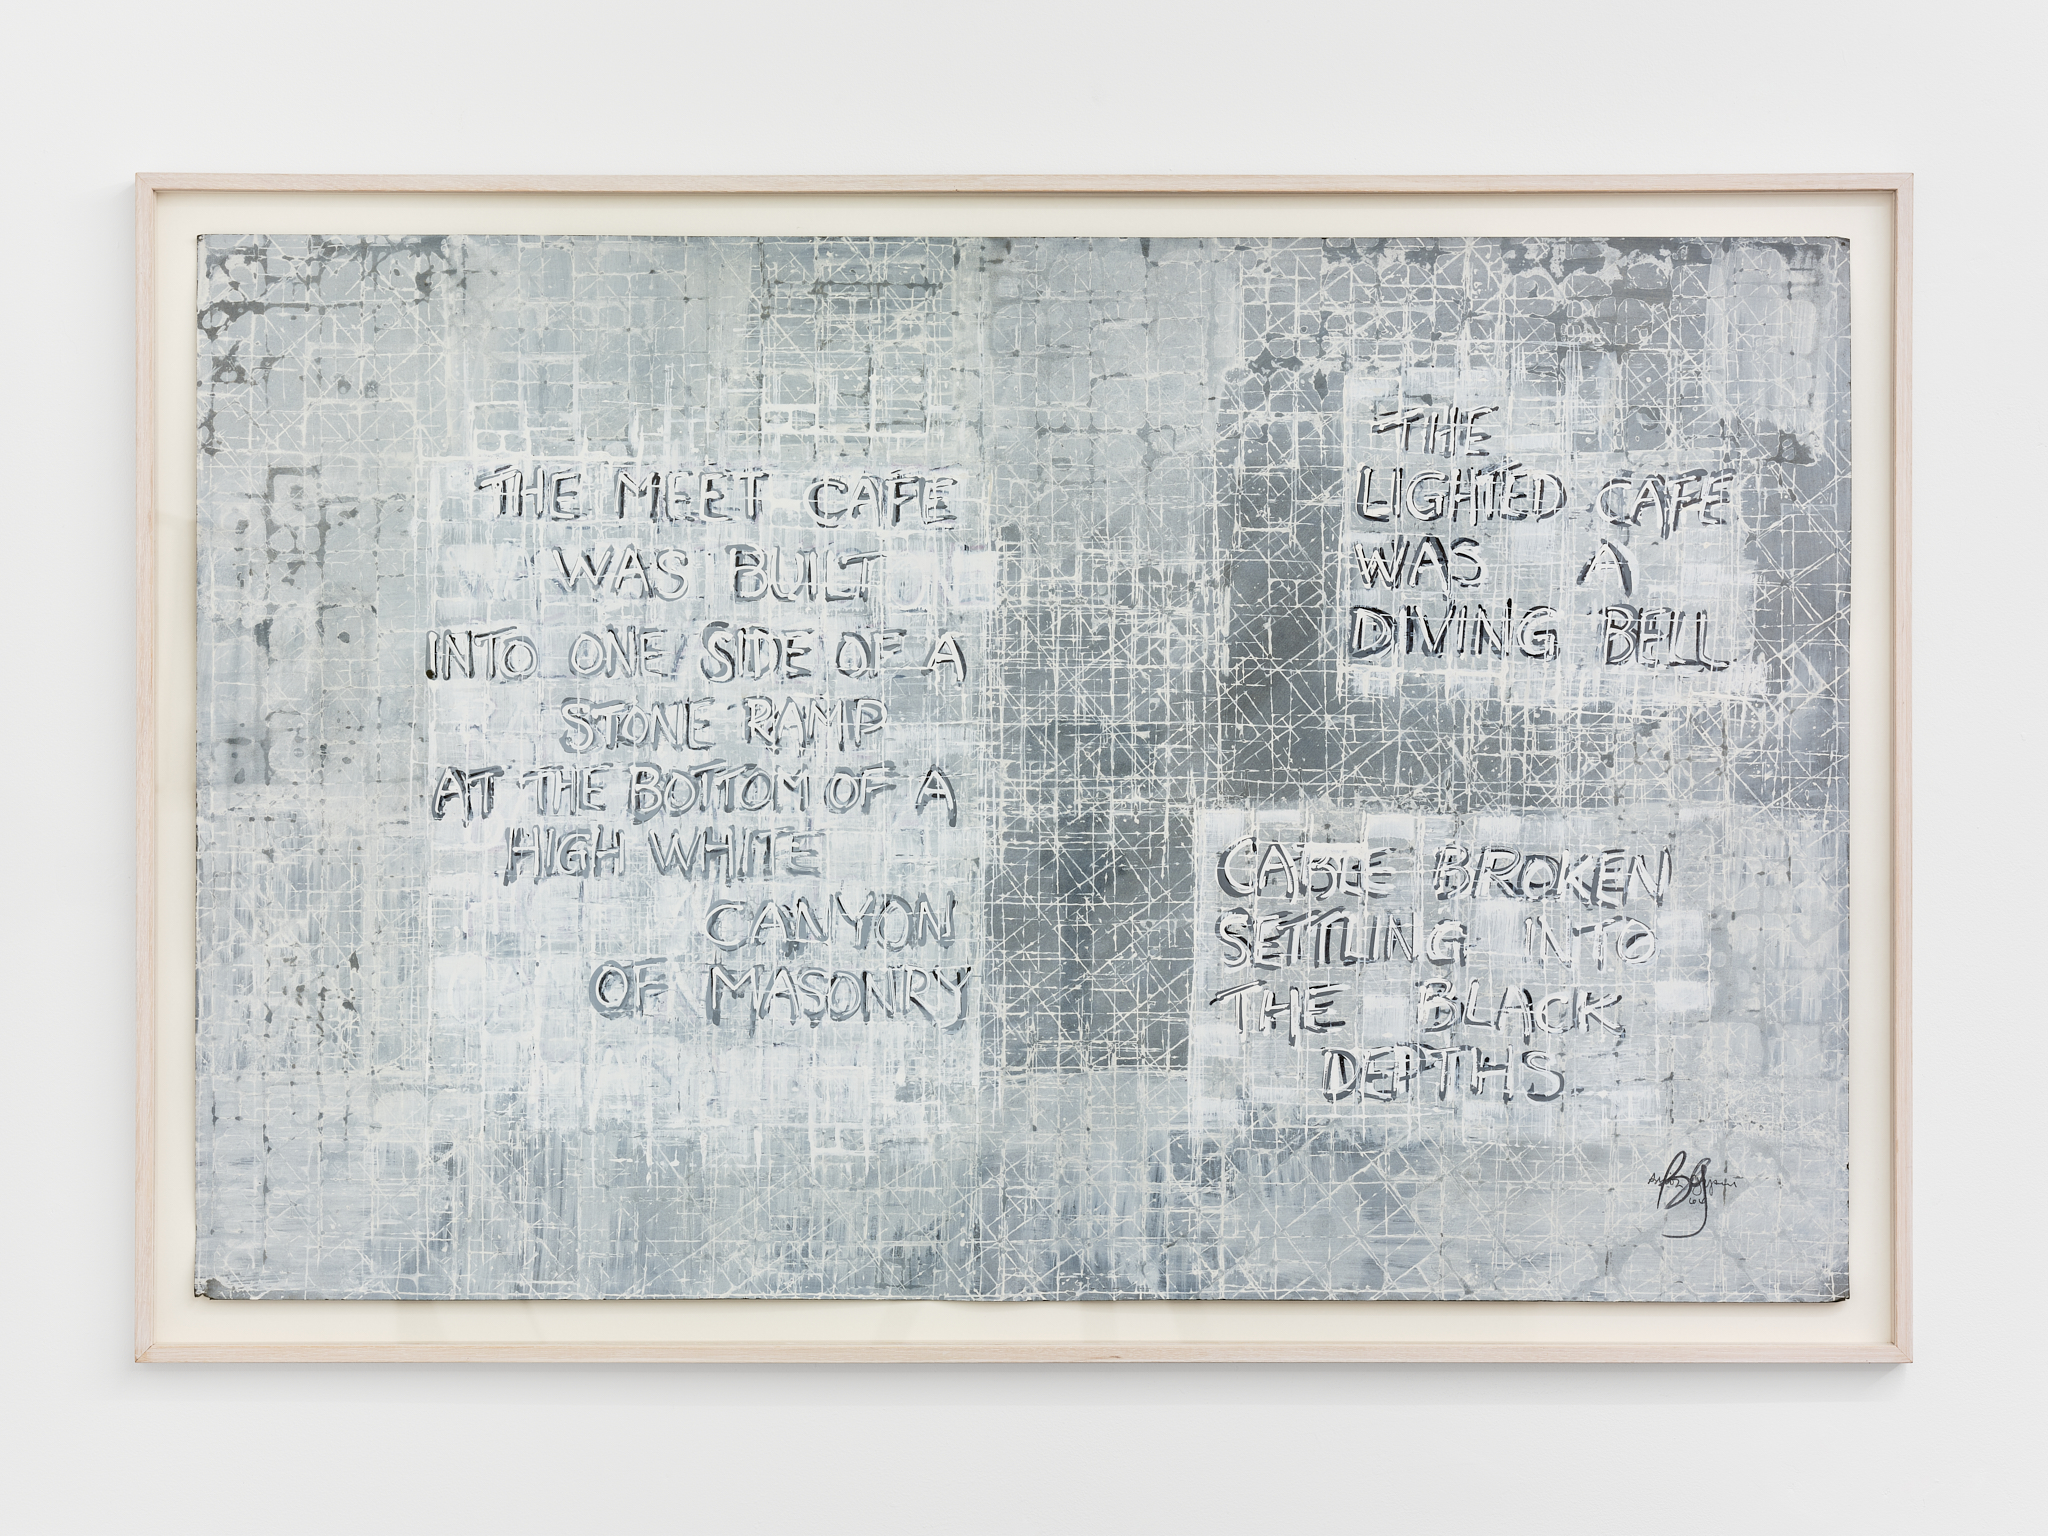 THE MEET CAFE
WAS BUILT
INTO ONE SIDE OF A
STONE RAMP
AT THE BOTTOM OF A
HIGH WHITE
CANYON
OF MASONRY
THE
LIGHTED CAFE
WAS A
DIVING BELL
CABLE BROKEN
SETTLING INTO
THE BLACK
DEPTHS